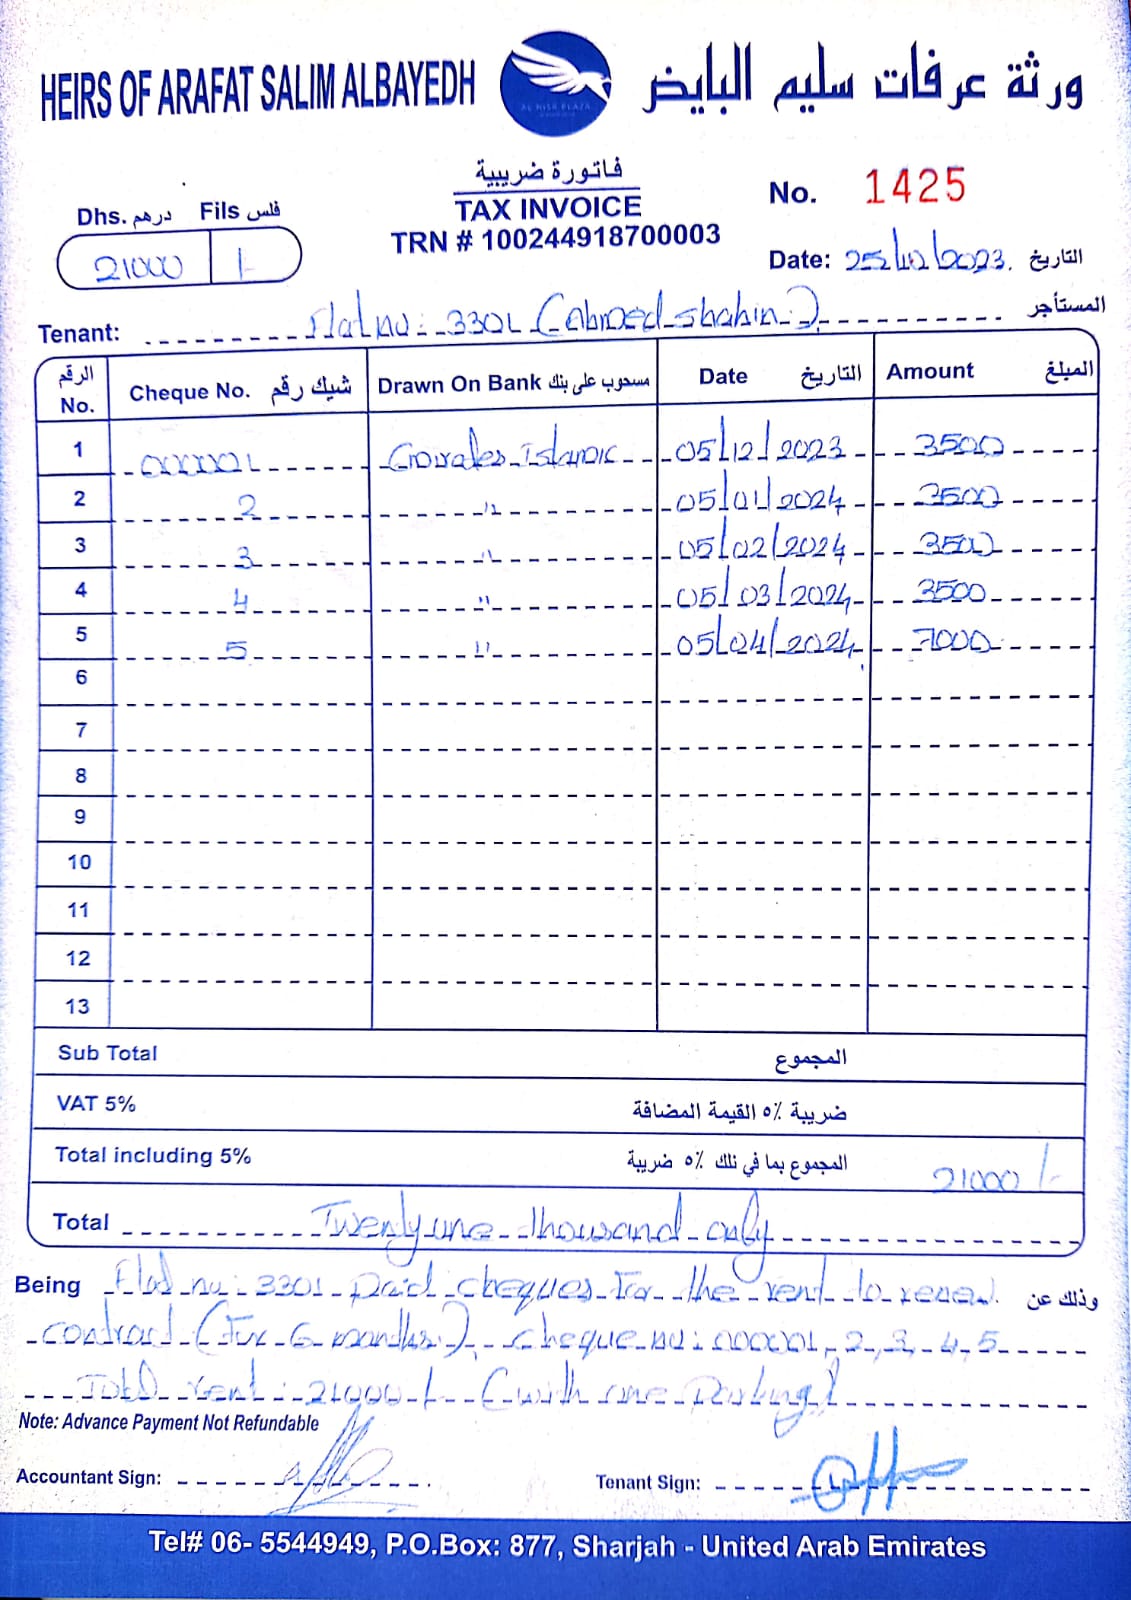 HEIRS OF ARAFAT SALIM ALBAYEDH
ورثة عرفات سليم البايض
AL NISR PLAZA
فاتورة ضريبية
TAX INVOICE
TRN # 100244918700003
No. 1425
Dhs. درهم Fils فلس
21000 /-
Date: 25/10/2023. التاريخ
Tenant: Flat no: 3301 (Ahmed Shahin) المستأجر
الرقم No. Cheque No. شيك رقم Drawn On Bank مسحوب على بنك Date التاريخ Amount المبلغ
1 000001 Emirates Islamic 05/12/2023 3500
2 2 " 05/01/2024 3500
3 3 " 05/02/2024 3500
4 4 " 05/03/2024 3500
5 5 " 05/04/2024 7000
6
7
8
9
10
11
12
13
Sub Total المجموع
VAT 5% ضريبة ٥٪ القيمة المضافة
Total including 5% المجموع بما في ذلك ٥٪ ضريبة 21000/-
Total Twenty one thousand only
Being Flat no: 3301 paid cheques for the rent to renew وذلك عن
contract (for 6 months). cheque no: 000001, 2, 3, 4, 5
Total rent: 21000/- (with one Parking)
Note: Advance Payment Not Refundable
Accountant Sign: Tenant Sign:
Tel# 06- 5544949, P.O.Box: 877, Sharjah - United Arab Emirates